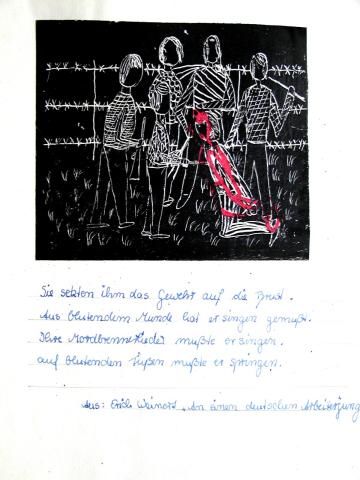 Sie setzten ihm das Gewehr auf die Brust.
Aus blutendem Munde hat er singen gemußt.
Ihre Mordbrennerlieder mußte er singen.
auf blutenden Füßen mußte er springen.
Aus: Erich Weinert, An einen deutschen Arbeiterjung